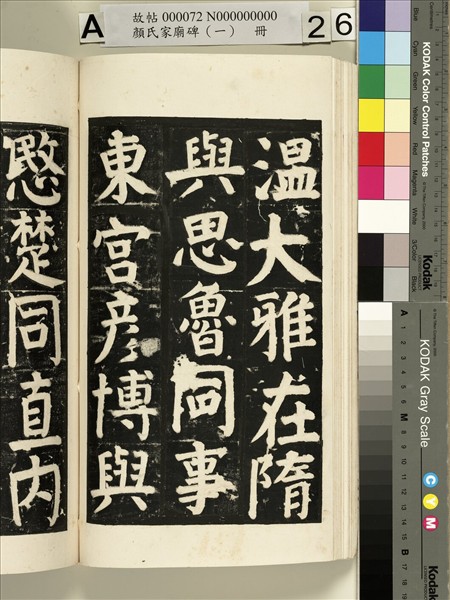 A
故帖 000072 N000000000
顏氏家廟碑（一） 冊
26
溫大雅在隋
與思魯同事
東宮彥博與
愍楚同直内
KODAK Color Control Patches
Blue
Cyan
Green
Yellow
Red
Magenta
White
3/Color
Black
Kodak
KODAK Gray Scale
C Y M
Kodak
A 1 2 3 4 5 6 M 8 9 10 11 12 13 14 15 B 17 18 19